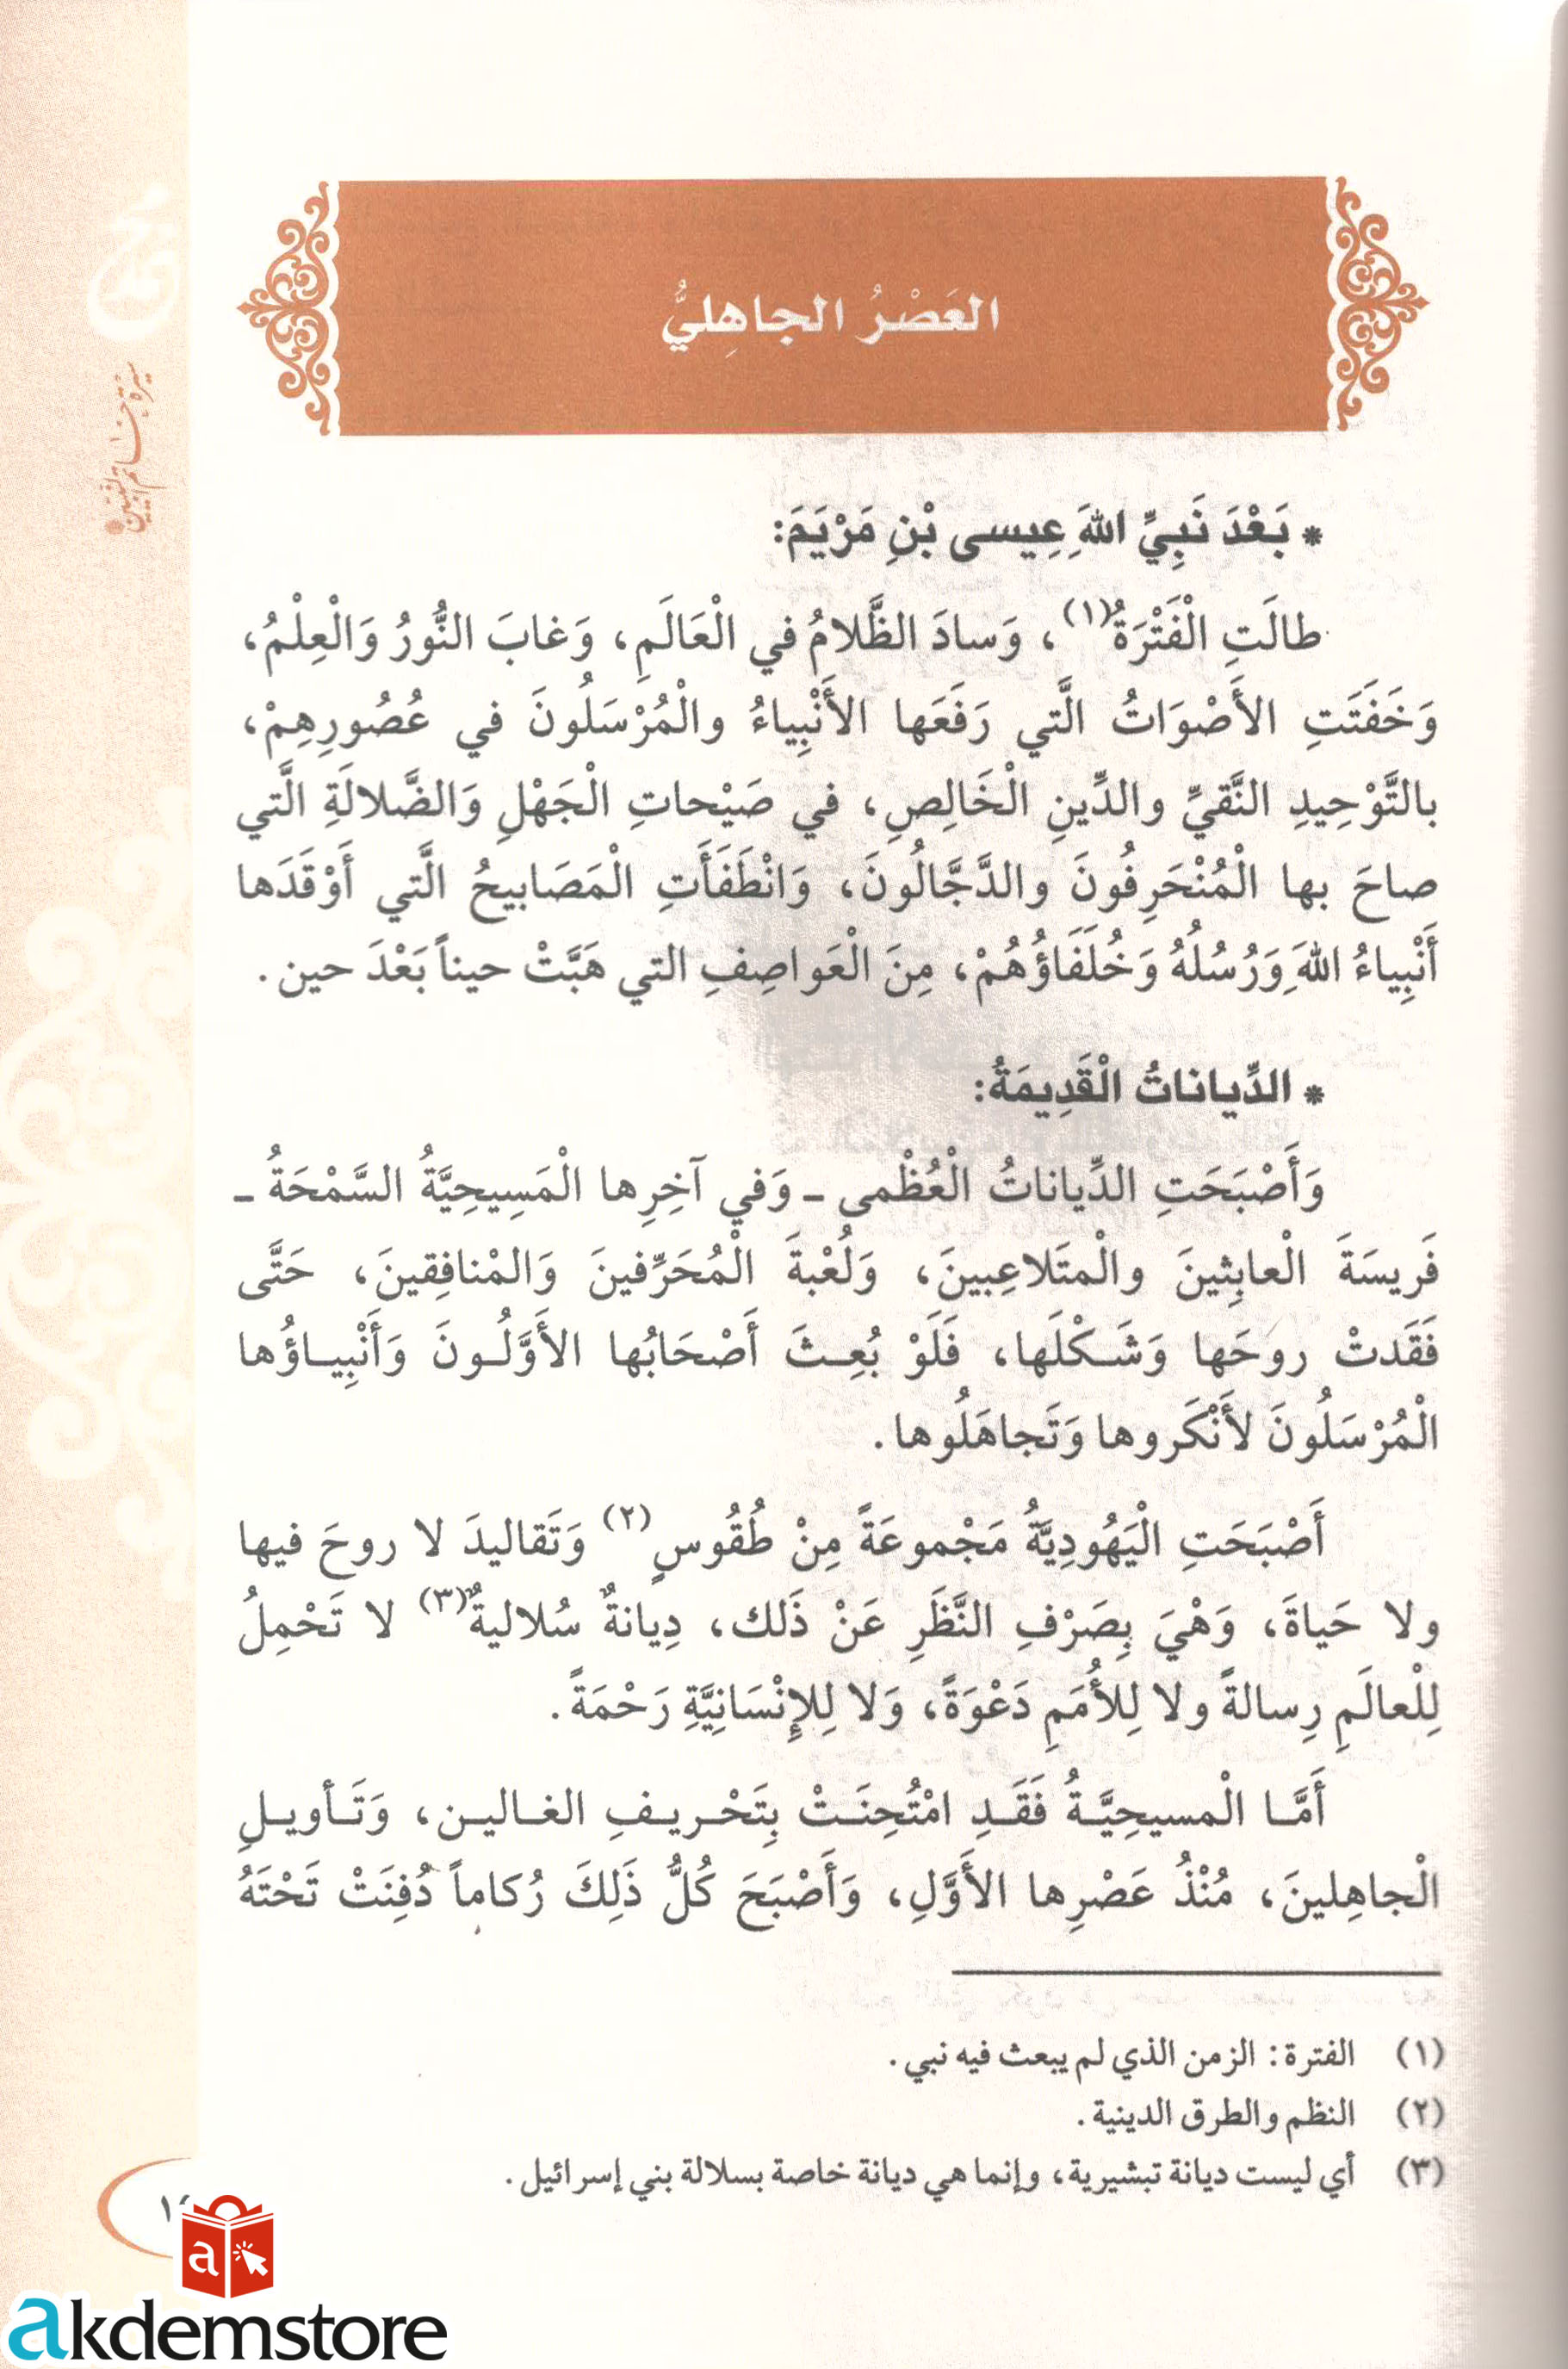 العَصْرُ الجاهِليُّ
سيرة خاتم النبيين
* بَعْدَ نَبِيِّ اللهِ عِيسى بْنِ مَرْيَمَ:
طالَتِ الْفَتْرَةُ(١)، وَسادَ الظَّلامُ في الْعَالَمِ، وَغابَ النُّورُ وَالْعِلْمُ،
وَخَفَتَتِ الأَصْوَاتُ الَّتي رَفَعَها الأَنْبِياءُ والْمُرْسَلُونَ في عُصُورِهِمْ،
بالتَّوْحِيدِ النَّقيِّ والدِّينِ الْخَالِصِ، في صَيْحاتِ الْجَهْلِ وَالضَّلالَةِ الَّتي
صاحَ بها الْمُنْحَرِفُونَ والدَّجَّالُونَ، وَانْطَفَأَتِ الْمَصَابيحُ الَّتي أَوْقَدَها
أَنْبِياءُ اللهِ وَرُسُلُهُ وَخُلَفَاؤُهُمْ، مِنَ الْعَواصِفِ التي هَبَّتْ حيناً بَعْدَ حين.
* الدِّياناتُ الْقَدِيمَةُ:
وَأَصْبَحَتِ الدِّياناتُ الْعُظْمى ـ وَفي آخِرِها الْمَسِيحِيَّةُ السَّمْحَةُ ـ
فَريسَةَ الْعابِثينَ والْمتَلاعِبينَ، وَلُعْبةَ الْمُحَرِّفينَ وَالمْنافِقينَ، حَتَّى
فَقَدتْ روحَها وَشَكْلَها، فَلَوْ بُعِثَ أَصْحَابُها الأَوَّلُونَ وَأَنْبِياؤُها
الْمُرْسَلُونَ لأَنْكَروها وَتَجاهَلُوها.
أَصْبَحَتِ الْيَهُودِيَّةُ مَجْموعَةً مِنْ طُقُوسٍ(٢) وَتَقاليدَ لا روحَ فيها
ولا حَياةَ، وَهْيَ بِصَرْفِ النَّظَرِ عَنْ ذَلك، دِيانةٌ سُلاليةٌ(٣) لا تَحْمِلُ
لِلْعالَمِ رِسالةً ولا لِلأُمَمِ دَعْوَةً، وَلا لِلإِنْسَانِيَّةِ رَحْمَةً.
أَمَّا الْمسيحِيَّةُ فَقَدِ امْتُحِنَتْ بِتَحْريفِ الغالين، وَتَأويلِ
الْجاهِلينَ، مُنْذُ عَصْرِها الأَوَّلِ، وَأَصْبَحَ كُلُّ ذَلِكَ رُكاماً دُفِنَتْ تَحْتَهُ
(١) الفترة: الزمن الذي لم يبعث فيه نبي.
(٢) النظم والطرق الدينية.
(٣) أي ليست ديانة تبشيرية، وإنما هي ديانة خاصة بسلالة بني إسرائيل.
a
akdemstore